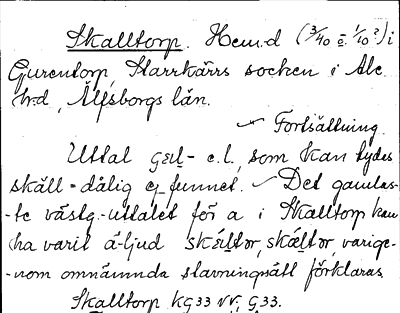 Skalltorp. Hem.d (3/40 o. 1/10?) i
Gunntorp, Starrkärrs socken i Ale
hrd, Älfsborgs län.
Fortsättning.
Uttal e.l., som kan tydas
skäll = dålig ej funnet. Det gamlas-
-te västg.-uttalet för a i Skalltorp kan
ha varit ä-ljud varige-
-nom omnämnda stavningsätt förklaras.
Skalltorp KG33 NV, G33.